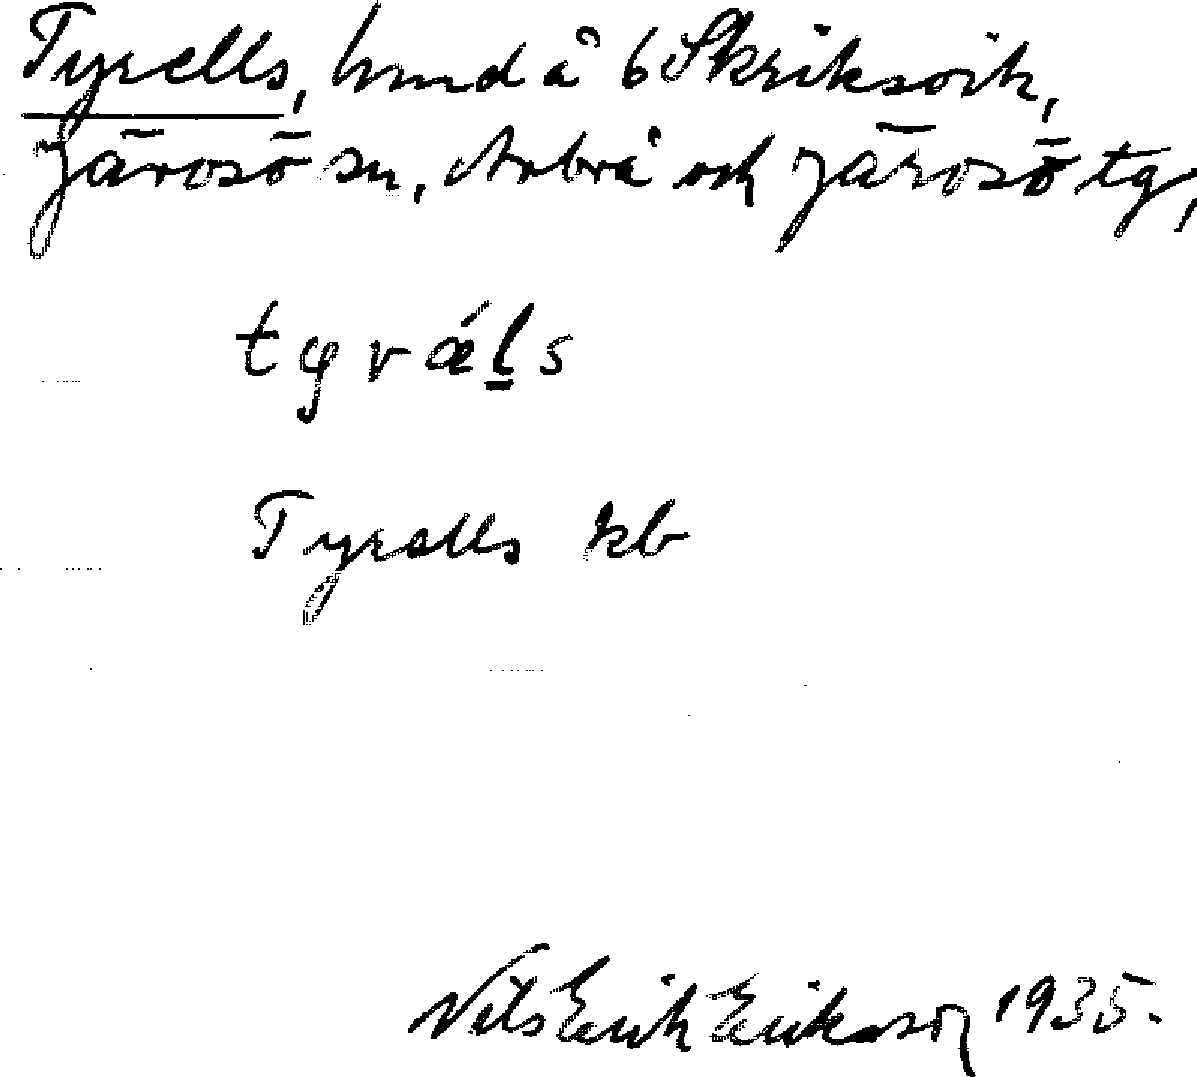 Tyrells, hmd å 6 Skriksvik,
Järvsö sn, Arbrå och Järvsö tg,
tyrǽls
Tyrells kb
Nils Erik Erikson 1935.